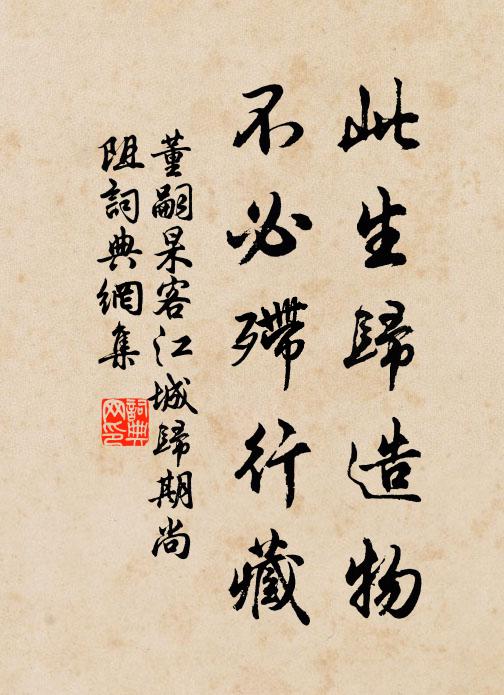 此生歸造物
不必殢行藏
董嗣杲客江城歸期尚
阻詞典網集
詞典
网印